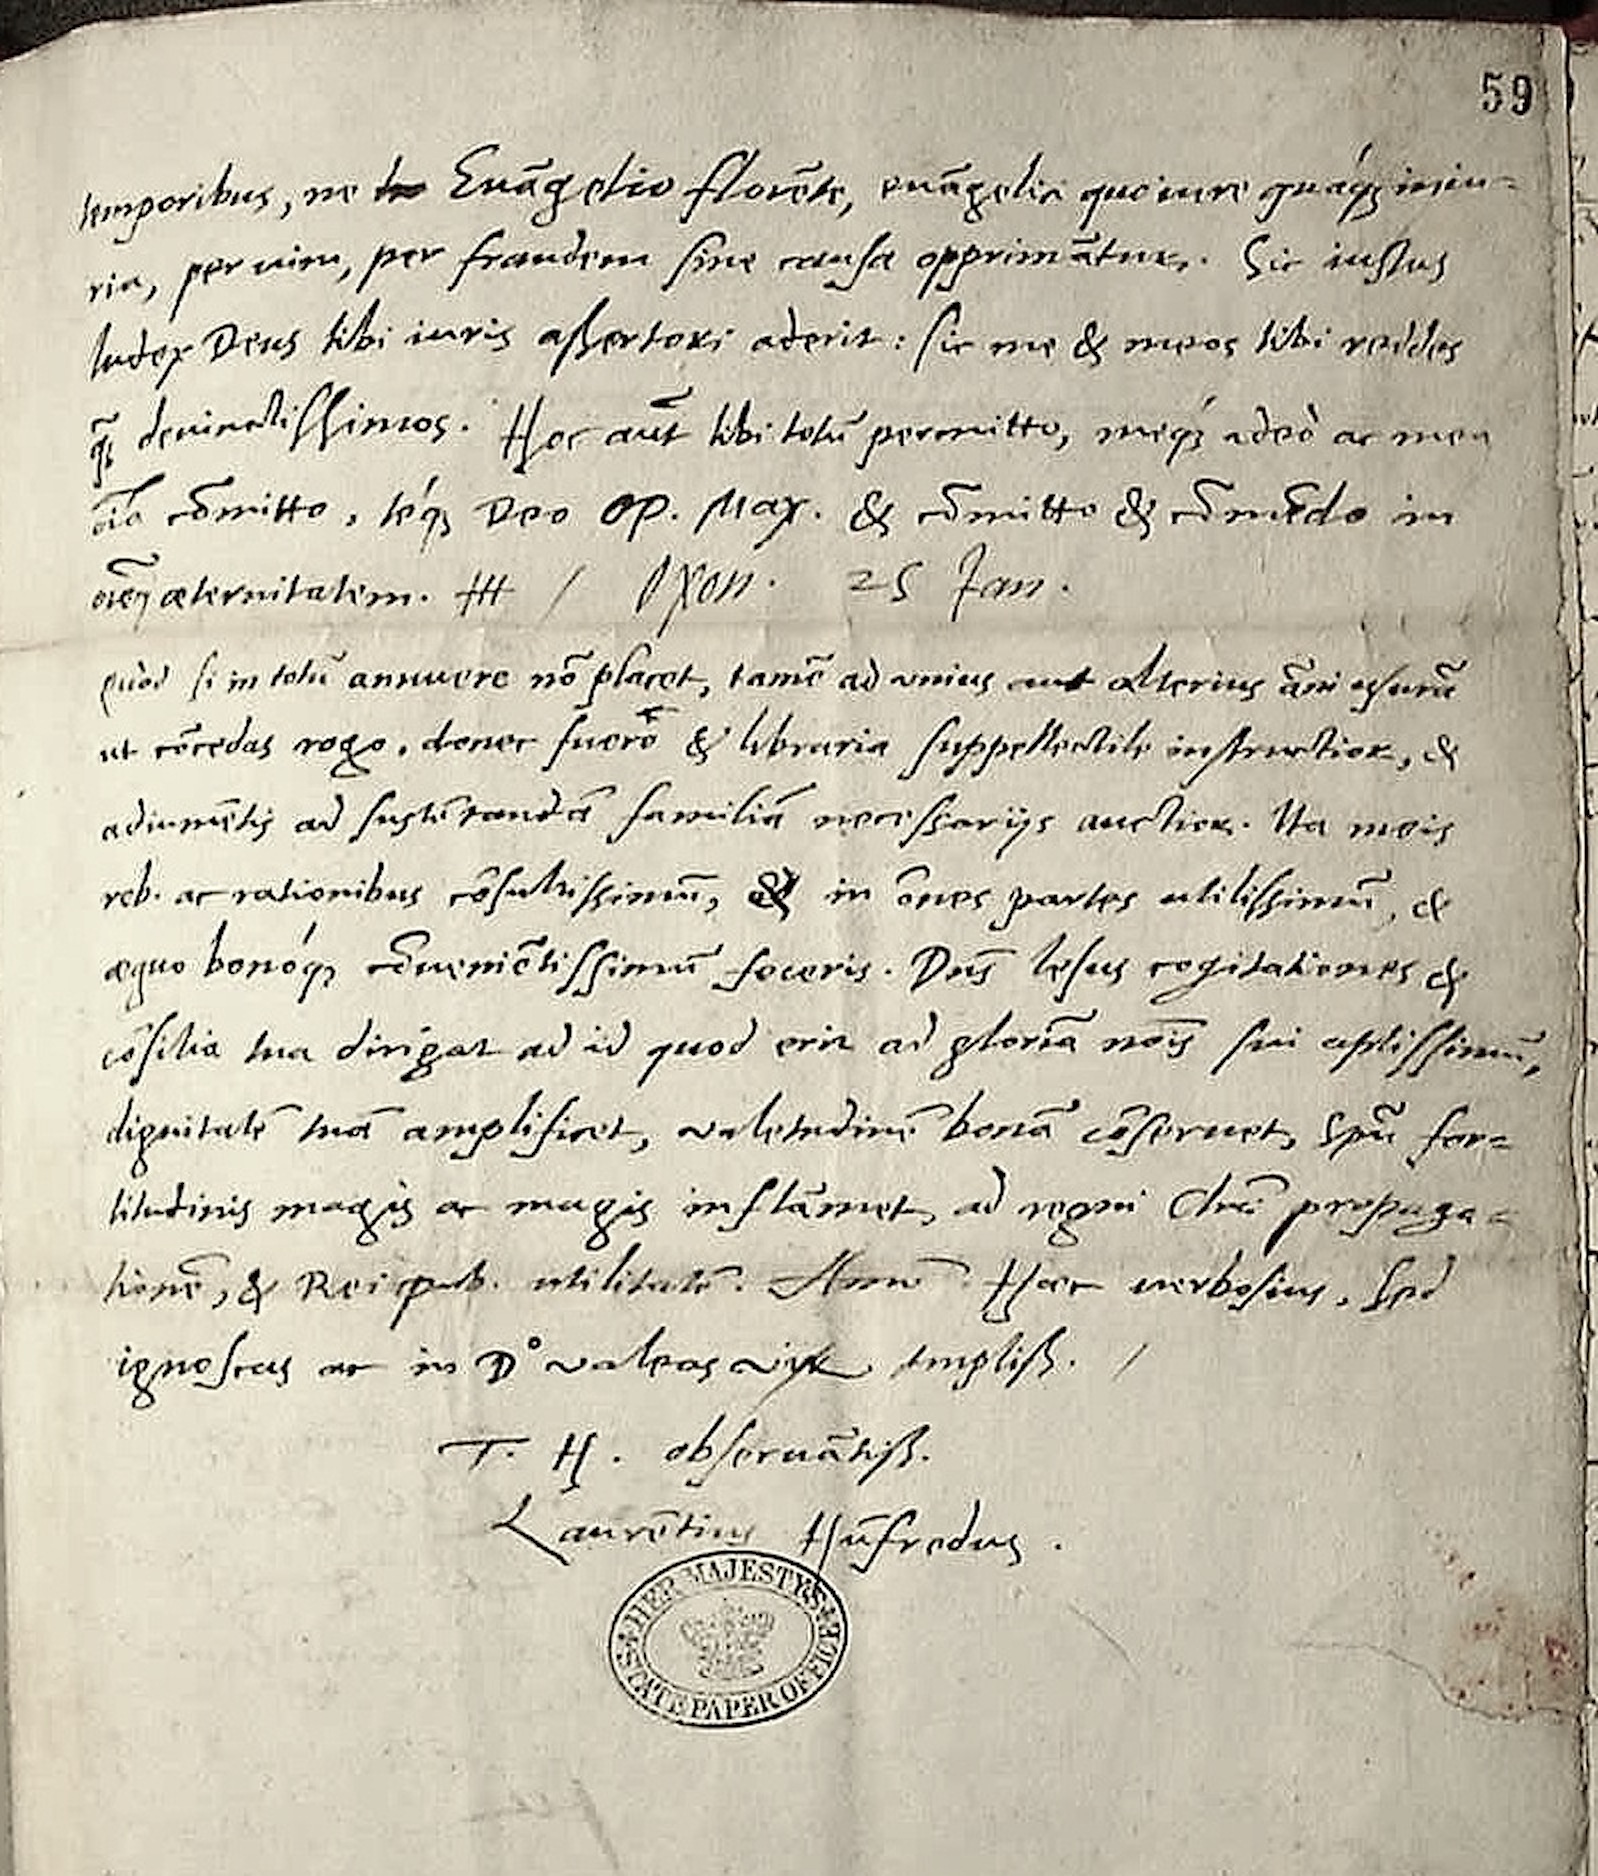 59
temporibus, ne Euãgelio florẽte, euãgelici quo iure quáq; iniu-
ria, per uim, per fraudem sine causa opprimãtur. Sic iustus
Iudex Deus tibi iuris assertori aderit: sic me & meos tibi reddes
q̃ deuinctissimos. Hoc aut̃ tibi totũ permitto, meq́; adeò ac mea
oĩa cõmitto, téq; Deo Op. Max. & cõmitto & cõmẽdo in
oẽm æternitatem. / Oxon. 25 Jan.
Quod si in totũ annuere nõ placet, tamẽ ad unius aut alterius ãni usurã
ut cõcedas rogo, donec fuero & libraria suppellectile instructior, &
adiumẽtis ad sustẽtandã familiã necessarijs auctior. Ita meis
reb. ac rationibus cõsultissimũ, & in õnes partes utilissimũ, &
æquo bonóq; cõueniẽtissimũ feceris. Dñs Iesus cogitationes &
cõsilia tua dirigat ad id quod erit ad gloriã nois̃ sui aptissimũ,
dignitatẽ tuã amplificet, valetudinẽ bonã cõseruet, Spũ for-
titudinis magis ac magis inflãmet, ad regni Chr̃i propaga-
tionẽ, & Reipub. utilitatẽ. Amẽ. Hæc uerbosius, sed
ignoscas ac in D° valeas ampliss. /
T. H. obseruãtiss.
Laurẽtius Hũfredus.
HER MAJESTY'S
STATE PAPER OFFICE